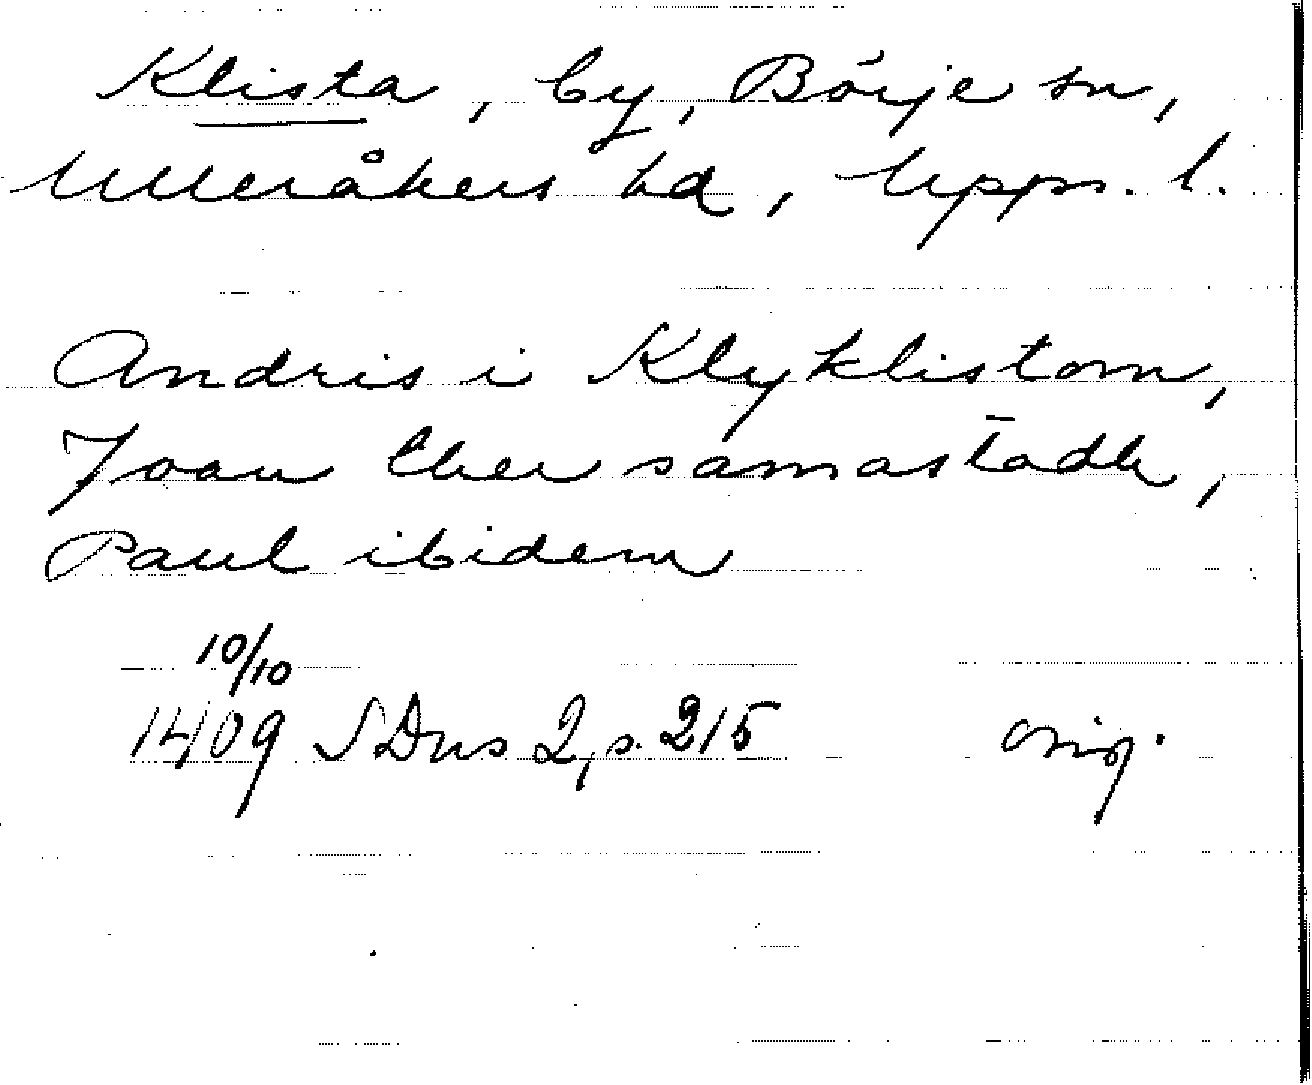 Klista, by, Börje sn,
Ulleråkers hd, Upps. l.
Andris i Klyklistom,
Joan ther samastadh,
Paul ibidem
10/10
1409 SDns 2, s. 215 orig.